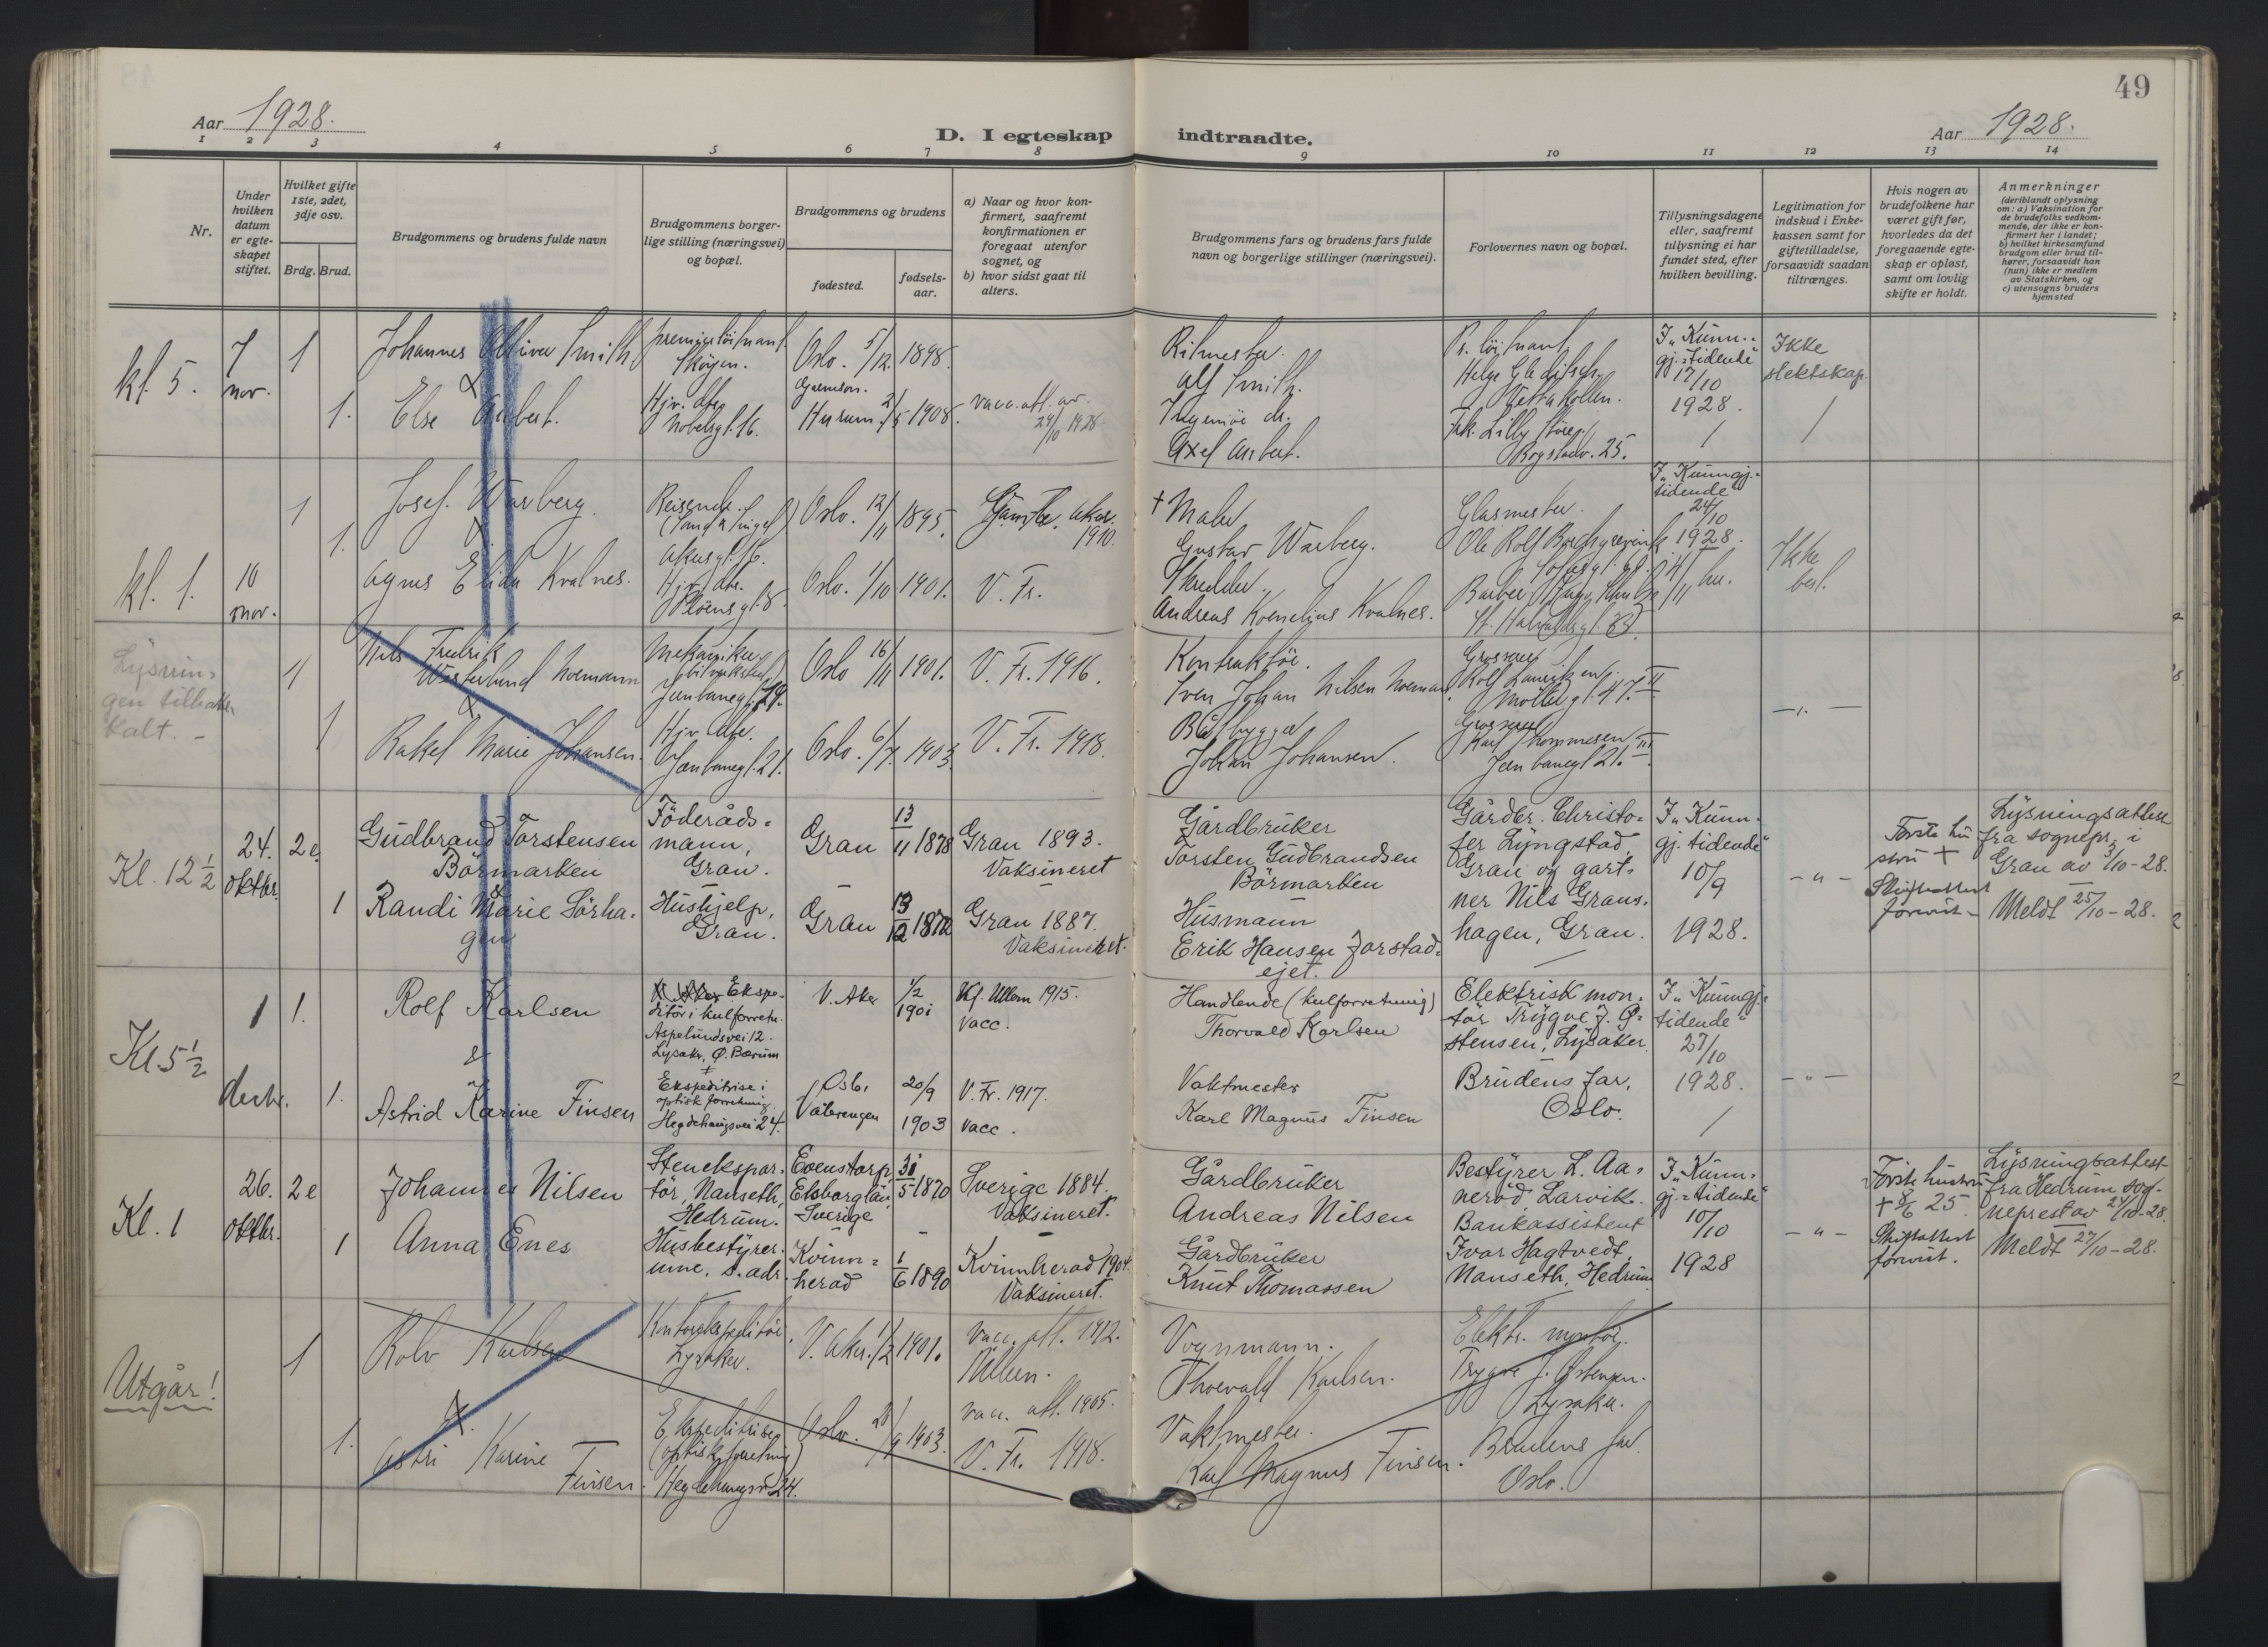 49
Aar 1928.
D. I egteskap indtraadte.
Aar 1928.
1 2 3 4 5 6 7 8 9 10 11 12 13 14
Nr.
Under hvilken datum er egte-skapet stiftet.
Hvilket gifte 1ste, 2det, 3dje osv.
Brdg. Brud.
Brudgommens og brudens fulde navn
Brudgommens borger-lige stilling (næringsvei) og bopæl.
Brudgommens og brudens
fødested.
fødsels-aar.
a) Naar og hvor kon-firmert, saafremt konfirmationen er foregaat utenfor sognet, og
b) hvor sidst gaat til alters.
Brudgommens fars og brudens fars fulde navn og borgerlige stillinger (næringsvei).
Forlovernes navn og bopæl.
Tillysningsdagene eller, saafremt tillysning ei har fundet sted, efter hvilken bevilling.
Legitimation for indskud i Enke-kassen samt for giftetilladelse, forsaavidt saadan tiltrænges.
Hvis nogen av brudefolkene har været gift før, hvorledes da det foregaaende egte-skap er opløst, samt om lovlig skifte er holdt.
Anmerkninger (deriblandt oplysning om: a) Vaksination for de brudefolks vedkom-mende, der ikke er kon-firmert her i landet; b) hvilket kirkesamfund brudgom eller brud til-hører, forsaavidt han (hun) ikke er medlem av Statskirken, og c) utensogns bruders hjemsted
kl. 5.
7 nov.
1
Johannes Smith
premierløitnant Skøyen.
Oslo. 5/12 1898.
Ritmester Alf Smith.
Pr. løitnant
Helge
I „Kunn-
gj.-tidende"
17/10
1928.
Ikke
slektskap.
&
1.
Else Aubert.
Hjv. dtr.
Nobelsgt. 16.
Hurum 2/5 1908.
vacc. att. av
24/10 1928
Ingeniør
Axel Aubert.
Frk. Lilly
25.
kl. 1.
10 nov.
1
Josef Warberg.
Reisende
Oslo. 12/11 1895.
Aker. 1910.
† Maler
Gustav Warberg.
Glasmester
Ole Rolf
I „Kunngj.-
tidende"
24/10
1928.
&
1.
Agnes Elida Kvalnes.
Akersgt. 16.
Hjv. dtr.
Pløensgt. 8.
Oslo. 1/10 1901.
V. Fr.
Andreas Kornelius Kvalnes.
Barber
Ikke
besl.
Lysnin-
gen tilbake
kalt. -
1
Nils Fredrik
Westerlund Noemann
Mekaniker
Jernbanegt. 19.
Oslo 16/11 1901.
V. Fr. 1916.
Kontraktør.
Sven Johan Nilsen Noemann.
Grosserer
Møllergt. 47. II
&
1
Rakel Marie Johansen.
Hjv. dtr.
Jernbanegt. 21.
Oslo. 6/7. 1903.
V. Fr. 1918.
Båtbygger
Johan Johansen.
Grosserer
Karl Thommesen
Jernbanegt 21. III
Kl. 12 1/2
24. oktbr.
2e.
Gudbrand Torstensen
Börmarken
Föderåds-
mann,
Gran.
Gran
13/11 1878
Gran 1893.
Vaksineret
Gårdbruker
Torsten Gudbrandsen
Börmarken
Gårdbr. Christo-
fer Lyngstad,
Gran og gart-
ner Nils Grans-
hagen, Gran.
I „Kunn-
gj. tidende"
10/9
1928.
- " -
Første hu
stru †
Skifteattest
forevist -
Lysningsattest
fra sognepr. i
Gran av 3/10-28.
Meldt 25/10-28.
&
1
Randi Marie Sörha-
gen
Hushjelp,
Gran.
Gran
13/12 1872
Gran 1887.
Vaksineret.
Husmann
Erik Hansen Jorstad-
ejet.
Kl. 5 1/2
1 decbr.
1.
Rolf Karlsen
Ekspe-
ditör i kulforretn.
Aspelundsvei 12.
Lysaker, Ø. Bærum
V. Aker
1/2
1901
Kf. Ullern 1915.
vacc.
Handlende (kulforretning)
Thorvald Karlsen
Elektrisk mon-
tør Trygve J. Ø-
stensen, Lysaker.
I „Kunngj.-
tidende"
27/10
1928.
- " -
&
1.
Astrid Karine Finsen
Ekspeditrise i
optisk forretning
Hegdehaugsvei 24.
Oslo,
Vålerengen
20/9
1903
V. Fr. 1917.
vacc.
Vaktmester
Karl Magnus Finsen
Brudens far,
Oslo.
Kl. 1
26. oktbr.
2e
Johannes Nilsen
Stenekspor-
tör, Nanseth,
Hedrum.
Evenstorp,
Elsborglän,
Sverige
31/5 1870
Sverige 1884.
Vaksineret.
Gårdbruker
Andreas Nilsen
Bestyrer L. Aa-
neröd, Larvik.
Bankassistent
Ivar Hagtvedt,
Nanseth, Hedrum
I „Kunn-
gj.-tidende"
10/10
1928
- " -
Første hustru
† 8/6 25.
Skifteattest
forevist.
Lysningsattest
fra Hedrum sog-
neprest av 24/10-28.
Meldt 27/10-28.
1
Anna Enes
Husbestyrer-
inne, s. adr.
Kvinn-
herad
1/6 1890
Kvinnherad 1904.
Vaksineret.
Gårdbruker
Knut Thomassen
Utgår!
1
Rolv Karlsen
Kontorekspeditør
Lysaker.
V. Aker. 1/2 1901.
vacc. att. 1912.
Ullern.
Vognmann.
Thorvald Karlsen.
Elektr. montør.
Trygve J. Østensen.
Lysaker.
&
1.
Astri Karine
Finsen.
Ekspeditrise
(optisk forretning)
Hegdehaugsv. 24.
Oslo. 20/9 1903.
vacc. att. 1905.
V. Fr. 1918.
Vaktmester.
Karl Magnus Finsen.
Brudens far.
Oslo.